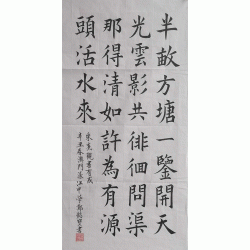 半畝方塘一鑒開天
光雲影共徘徊問渠
那得清如許為有源
頭活水來
朱熹觀書有感
辛丑春